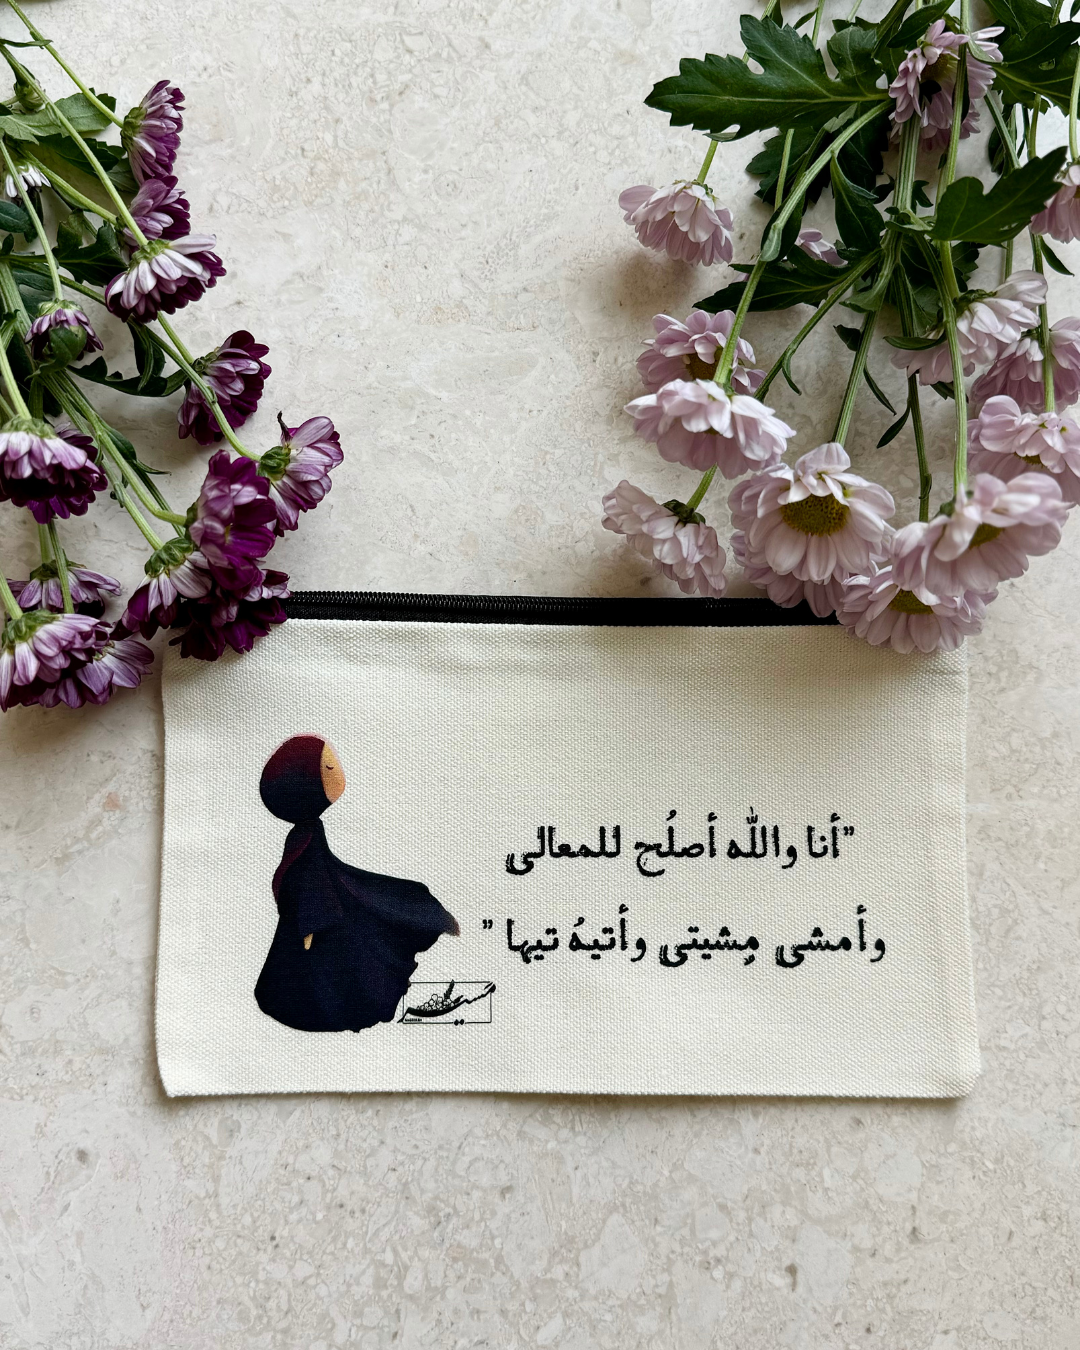 "أنا والله أصلُح للمعالى
وأمشى مِشيتى وأتيهُ تيها "